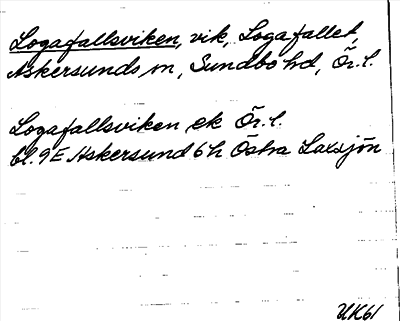 Logafallsviken, vik, Logafallet,
Askersunds sn, Sundbo hd, Ör. l.
Logafallsviken ek Ör. l.
bl. 9E Askersund 6h Östra Laxsjön
UK61